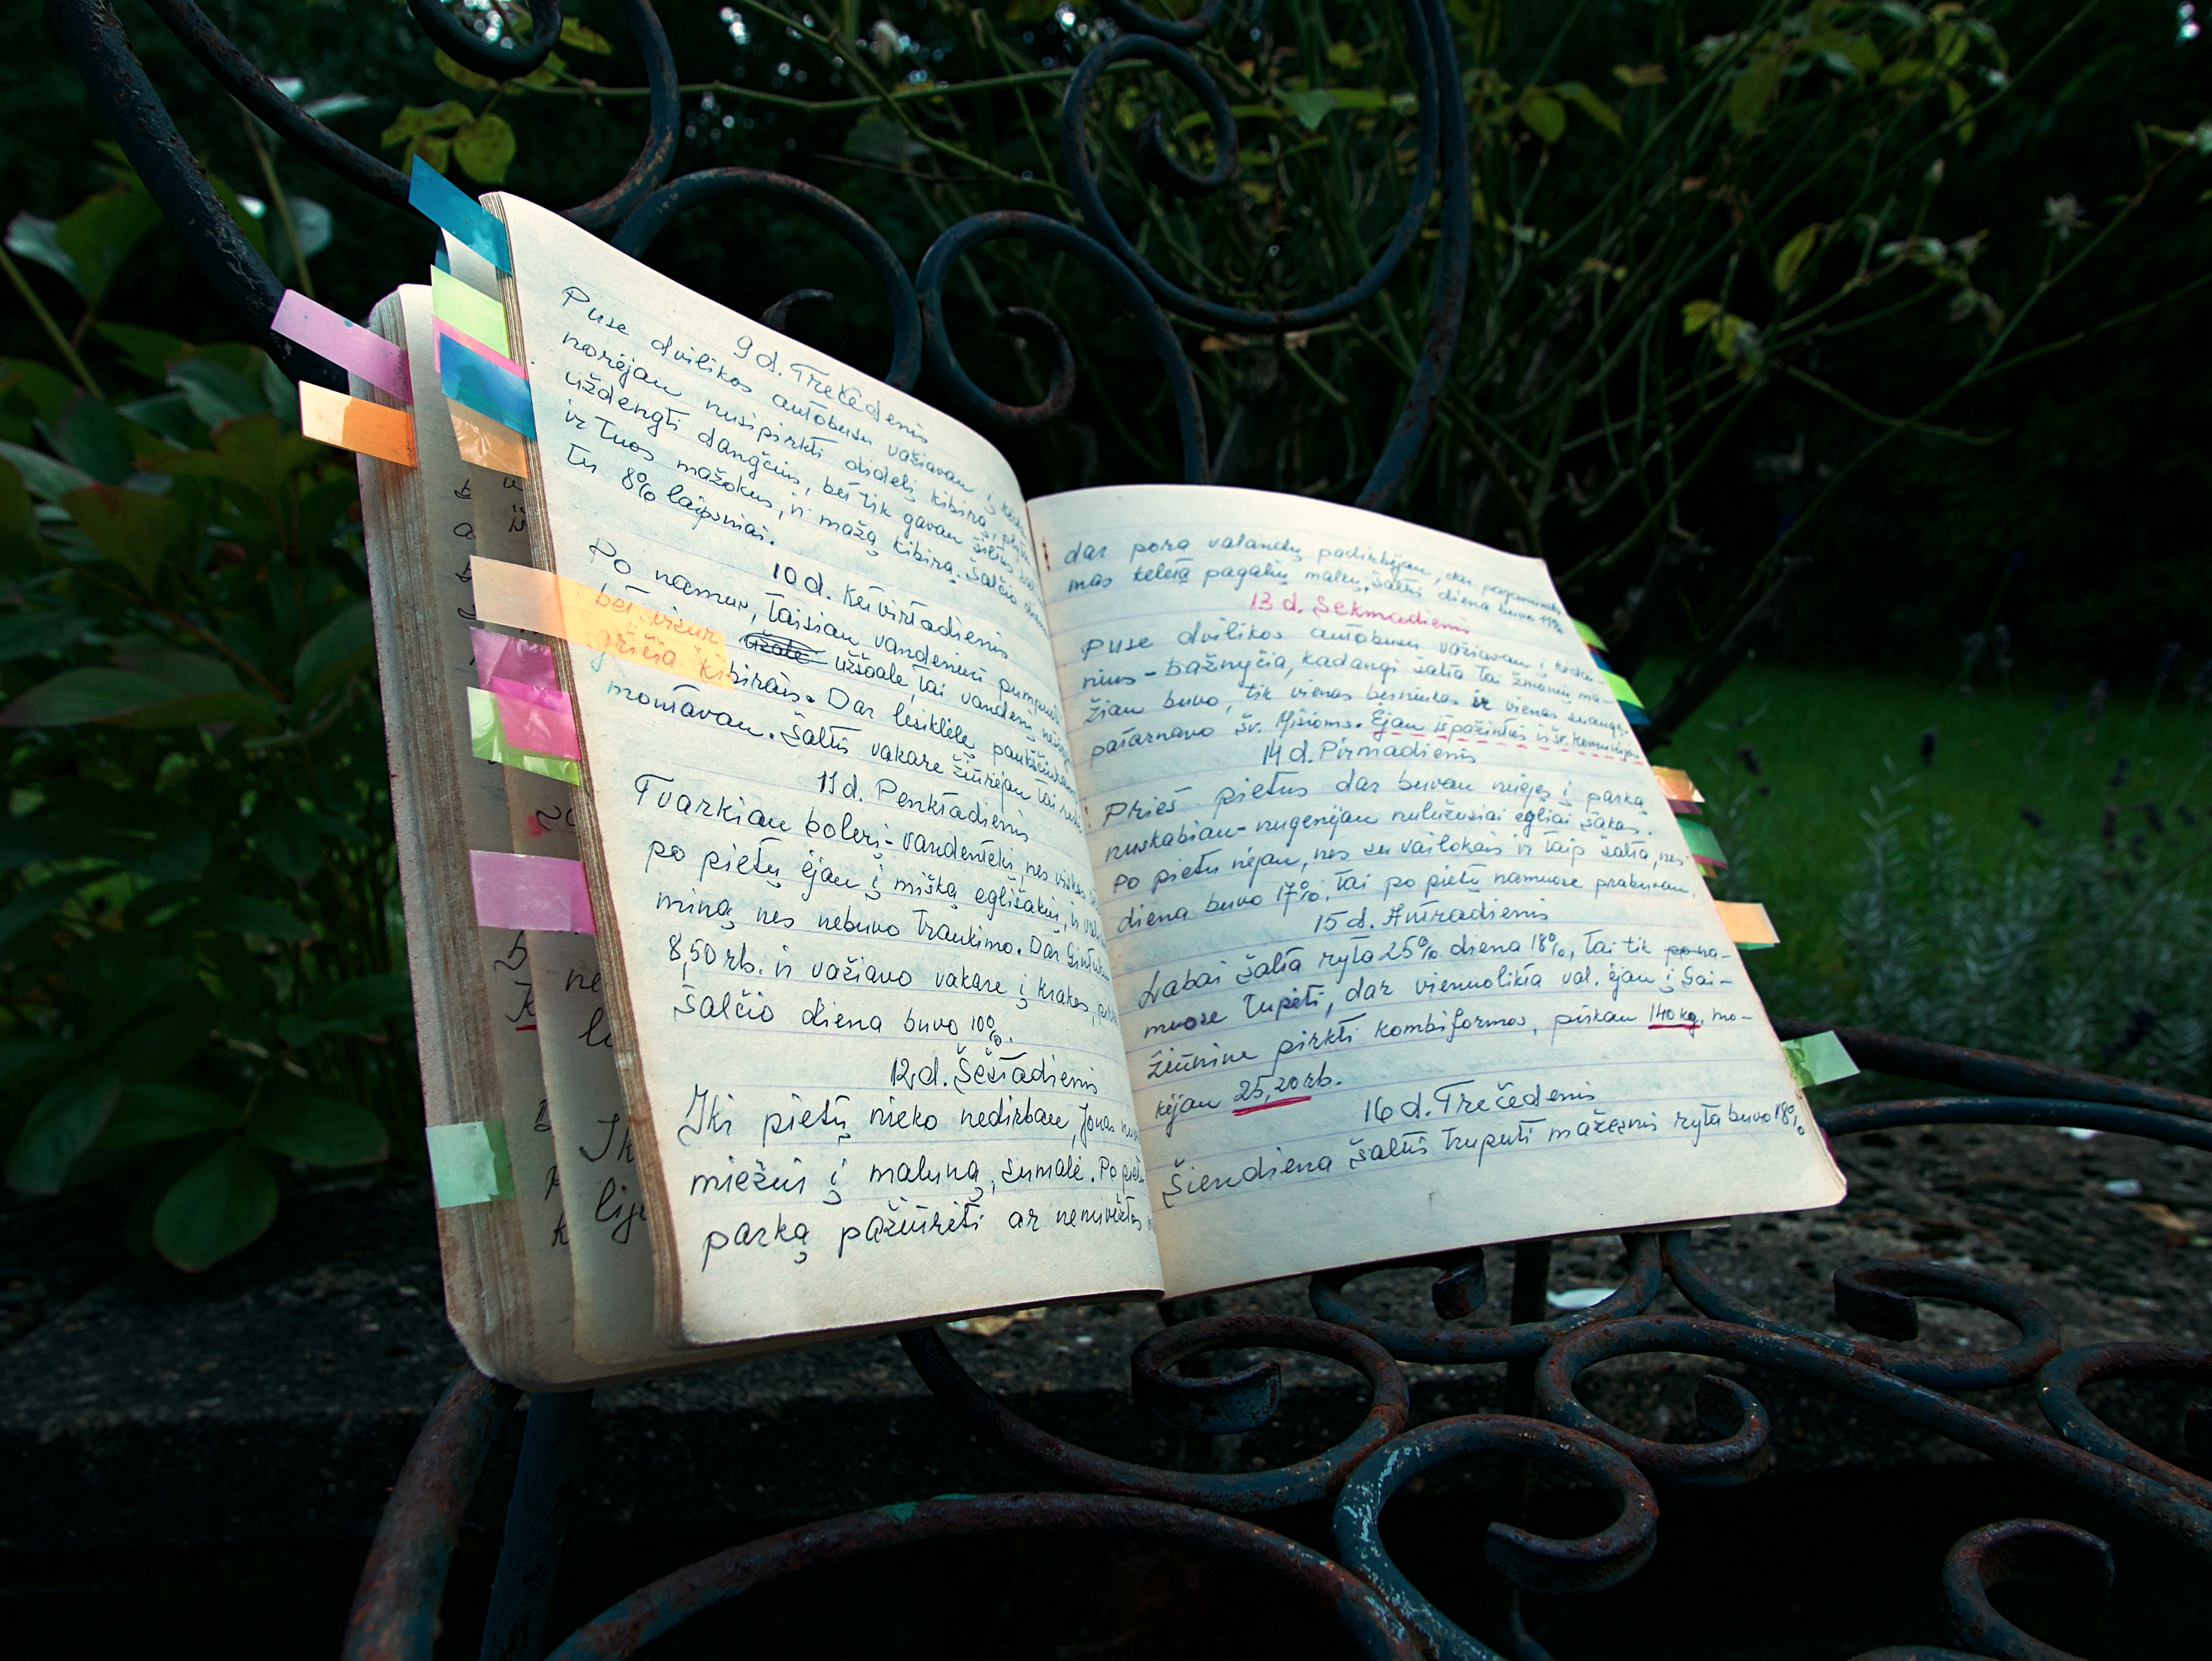 9 d. Trečedenis
Puse dvilikos autobusu važiavau į
norėjau nusipirkti didelį kibirą,
uždengti dangčius, bet tik gavau
ir tuos mažokus, ir mažą kibirą. Šalčio
tu 8% laipsniai.
10 d. Ketvirtadienis
Po namus, taisiau vandeninį
bet užale užšoale, tai vandenį
kibirais. Dar lesiklėlę
montavau. Šaltis vakare žiūrėjau tai
11 d. Penktadienis
Tvarkiau bolerį-vandentekį, nes
po pietų ėjau į mišką eglišakių, ir
miną nes nebuvo traukimo. Dar
8,50 rb. ir važiavo vakare į Krakes,
šalčio diena buvo 10%.
12 d. Šeštadienis
Iki pietų nieko nedirbau, Jonas
miežius į maluną, sumalė. Po
parką pažiūrėti ar nenuvežtos
dar porą valandų padirbėjau, dar
mas keletą pagalių malkų, šaltis diena buvo 11%
13 d. Sekmadienis
Puse dvilikos autobusu važiavau į
nius-bažnyčią, kadangi šalta tai žmonių ma-
žiau buvo, tik vienas ir vienas
patarnavo šv. Mišioms. Ėjau išpažinties ir šv.
14 d. Pirmadienis
Prieš pietus dar buvau nuėjęs į parką
nuskabiau-nugenėjau nulužusiai egliai šakas.
Po pietu nėjau, nes su vailokais ir taip šalta, nes
diena buvo 17%. Tai po pietų namuose prabuvau.
15 d. Antradienis
Labai šalta ryta 25% diena 18%, tai tik po na-
muose tupėti, dar vienuolikta val. ėjau į Gai-
žiūnine pirkti kombiformos, pirkau 140 kg. mo-
kėjau 25,20 rb.
16 d. Trečedenis
Šiendiena šaltis truputi mažesnis ryta buvo 18%